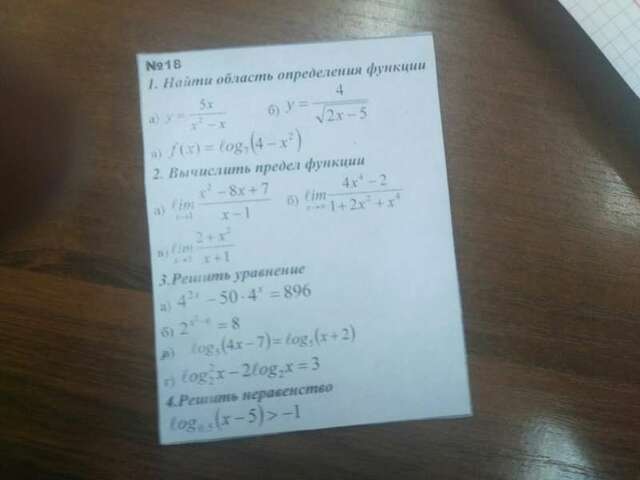 №18
1. Найти область определения функции
а) y = 5x / (x² − x) б) y = 4 / √(2x − 5)
в) f(x) = log₇(4 − x²)
2. Вычислить предел функции
а) lim x→1 (x² − 8x + 7) / (x − 1) б) lim (4x⁴ − 2) / (1 + 2x² + x⁴)
в) lim (2 + x²) / (x + 1)
3.Решить уравнение
а) 4²ˣ − 50·4ˣ = 896
б) 2 = 8
в) log₅(4x − 7) = log₅(x + 2)
г) log₂²x − 2log₂x = 3
4.Решить неравенство
log₀,₅(x − 5) > −1